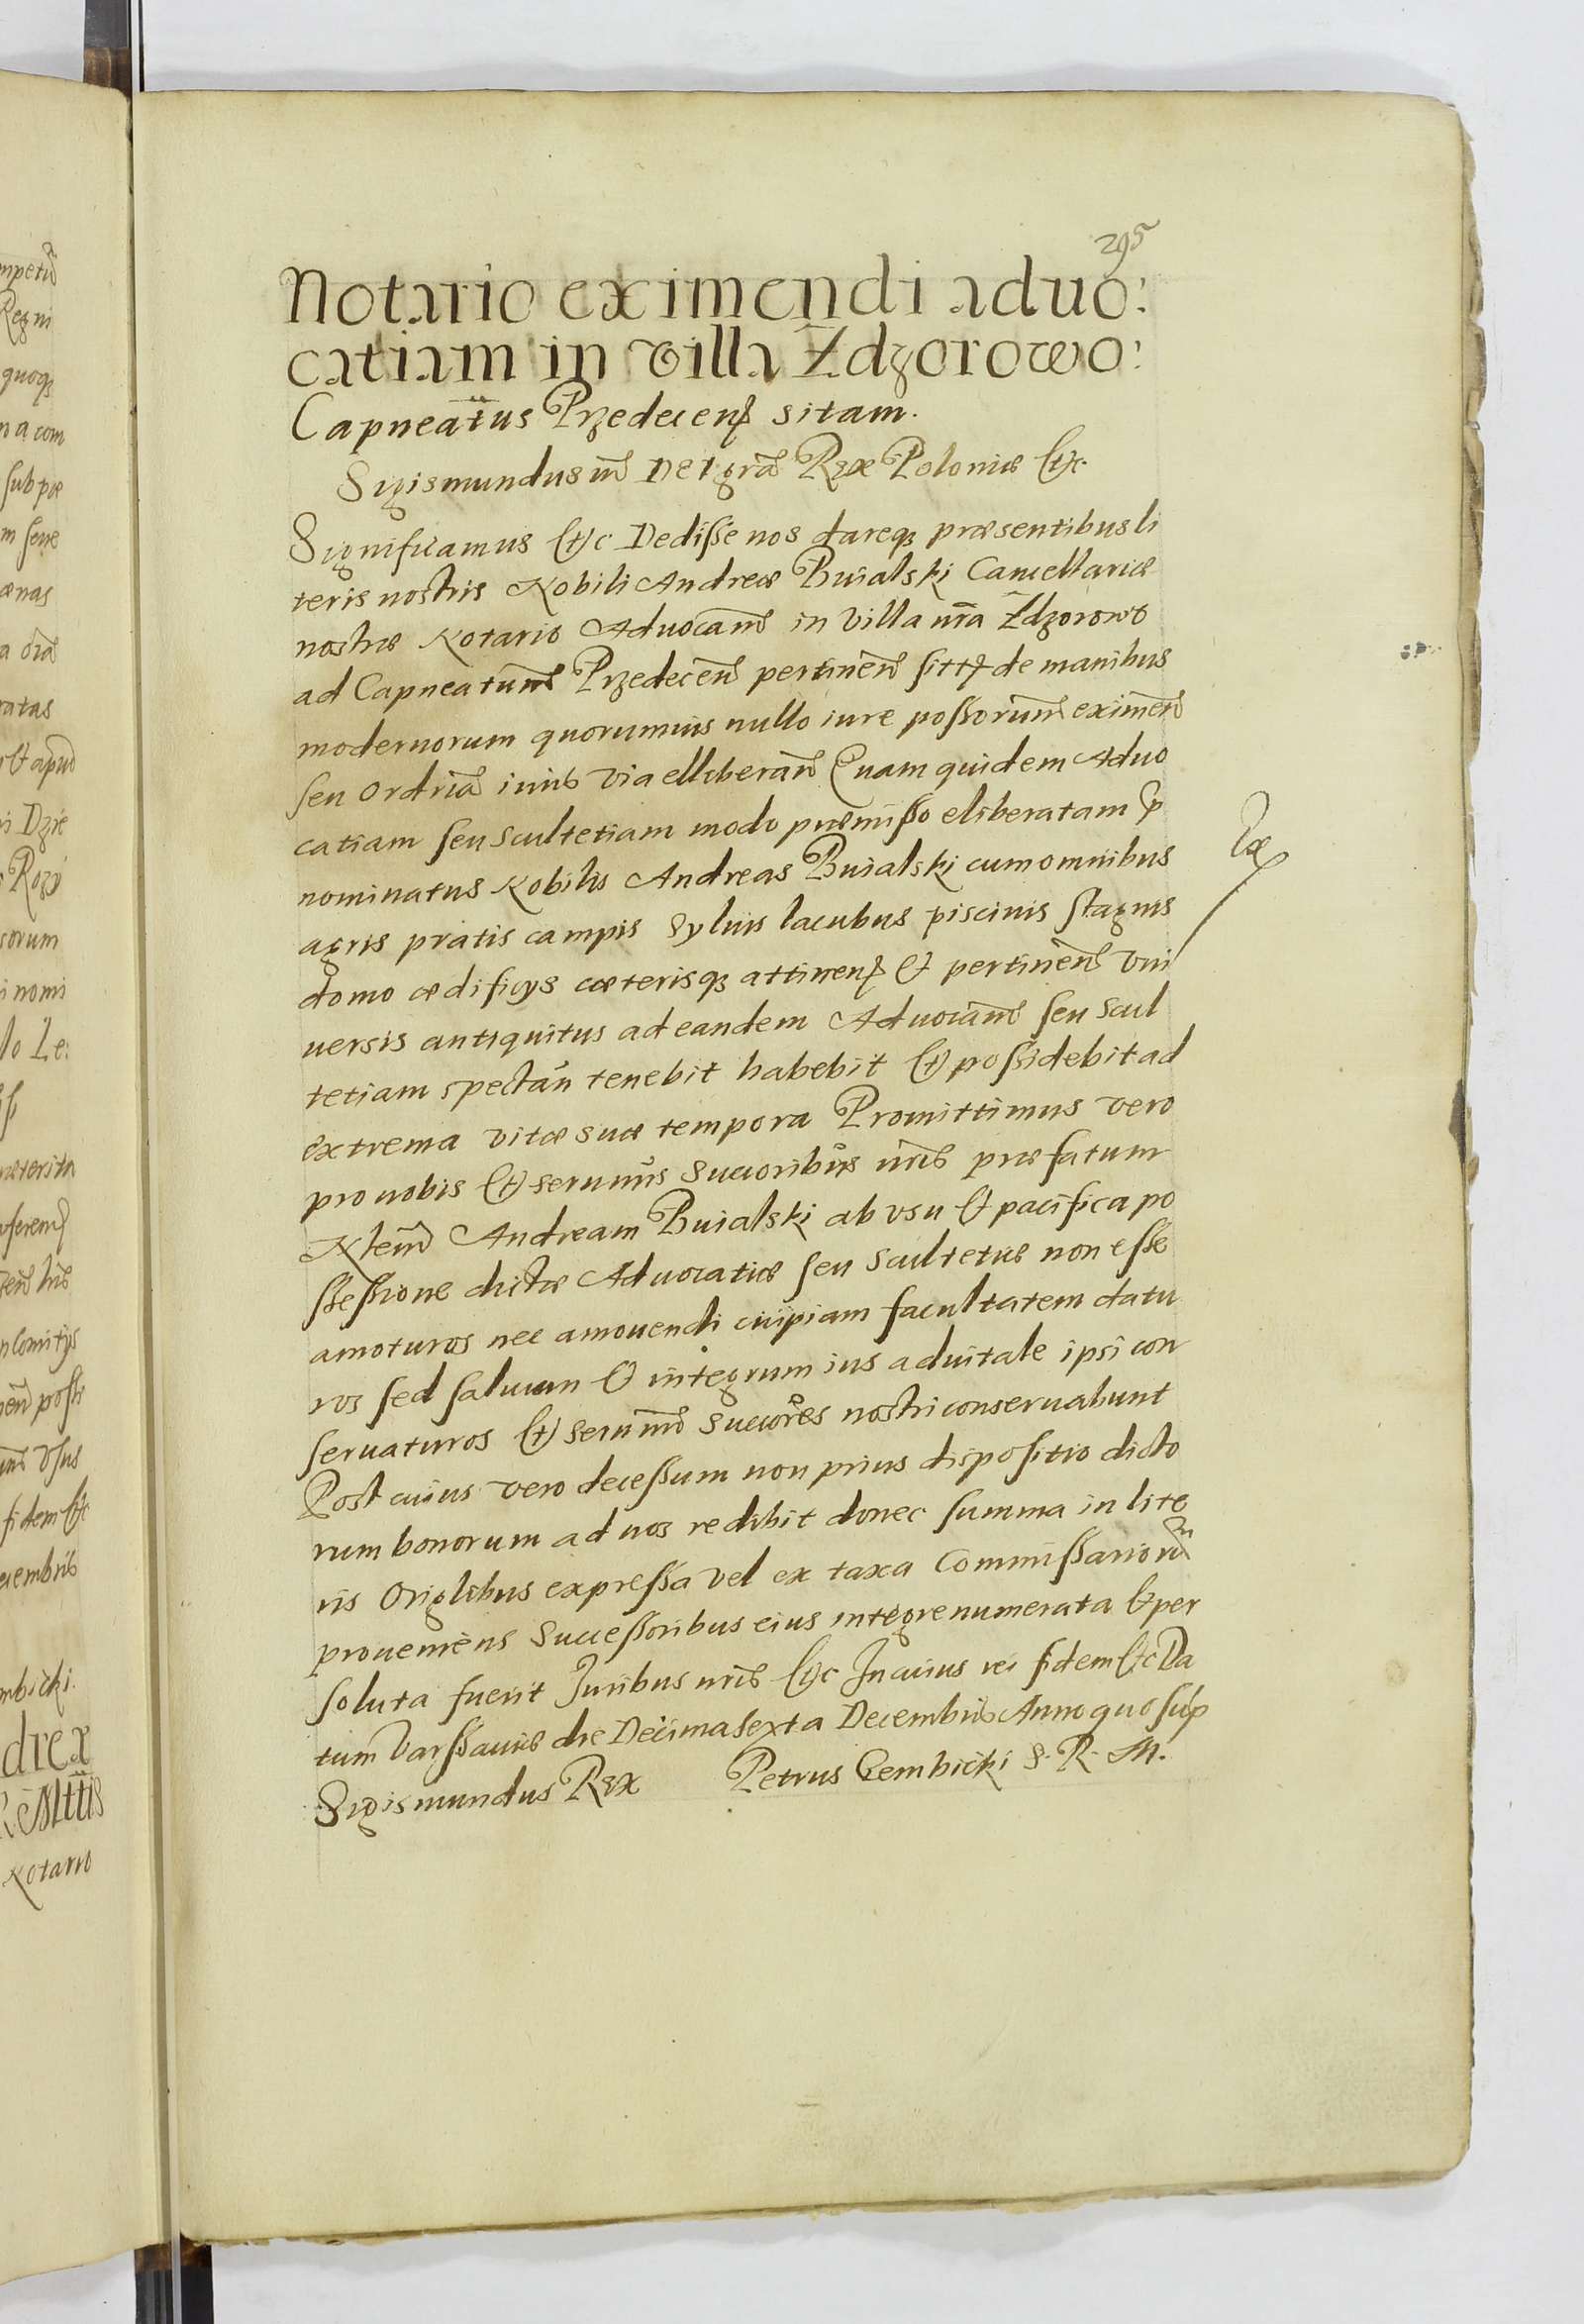 295
Notario eximendi aduo:
catiam in villa Żdzorowo:
Capneatus Przedecen sitam.
Sigismundus III Dei gra Rex Poloniæ &c.
Significamus &c Dedisse nos dareq præsentibus li
teris nostris Nobili Andreæ Buialski Cancellariæ
nostræ Notario Aduocam in Villa nra Żdzorowo
ad Capneatum Przedecen pertinen sitt de manibus
modernorum quorumuis nullo iure possorum eximen
seu Ordria iuris via elliberan Quam quidem Aduo
catiam seu Scultetiam modo præmisso eliberatam p
nominatus Nobilis Andreas Buialski cum omnibus
agris pratis campis Syluis lacubus piscinis stagnis
domo ædificys cæterisq attinen & pertinen vni
uersis antiquitus ad eandem Aduocam seu Scul
tetiam spectan tenebit habebit & possidebit ad
extrema vitæ suæ tempora Promittimus vero
pro nobis & sernmis Succoribus nris præfatum
Nlem Andream Buialski ab vsu & pacifica po
ssessione dictæ Aduocatiæ seu Scultetiæ non esse
amoturos nec amouendi cuipiam facultatem datu
ros sed saluum & integrum ius aduitale ipsi con
seruaturos & sernmi Succores nostri conseruabunt
Post cuius vero decessum non prius dispositio dicto
rum bonorum ad nos redibit donec summa in lite
ris Origlibus expressa vel ex taxa Commissarioru
proueniens Successoribus eius integre numerata & per
soluta fuerit Juribus nris &c In cuius rei fidem &c Da
tum Varssauiæ die Decima sexta Decembris Anno quo sup
Sigismundus Rex Petrus Gembicki S. R. M.